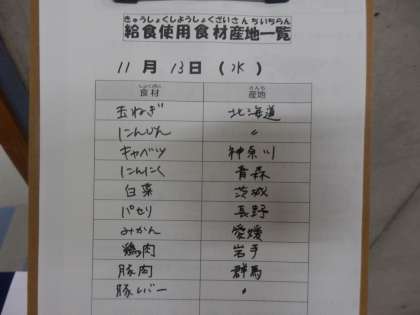 きゅうしょくしようしょくざいさんちいちらん
給食使用食材産地一覧
11月13日(水)
しょくざい さんち
食材 産地
玉ねぎ 北海道
にんじん 〃
キャベツ 神奈川
にんにく 青森
白菜 茨城
パセリ 長野
みかん 愛媛
鶏肉 岩手
豚肉 群馬
豚レバー 〃